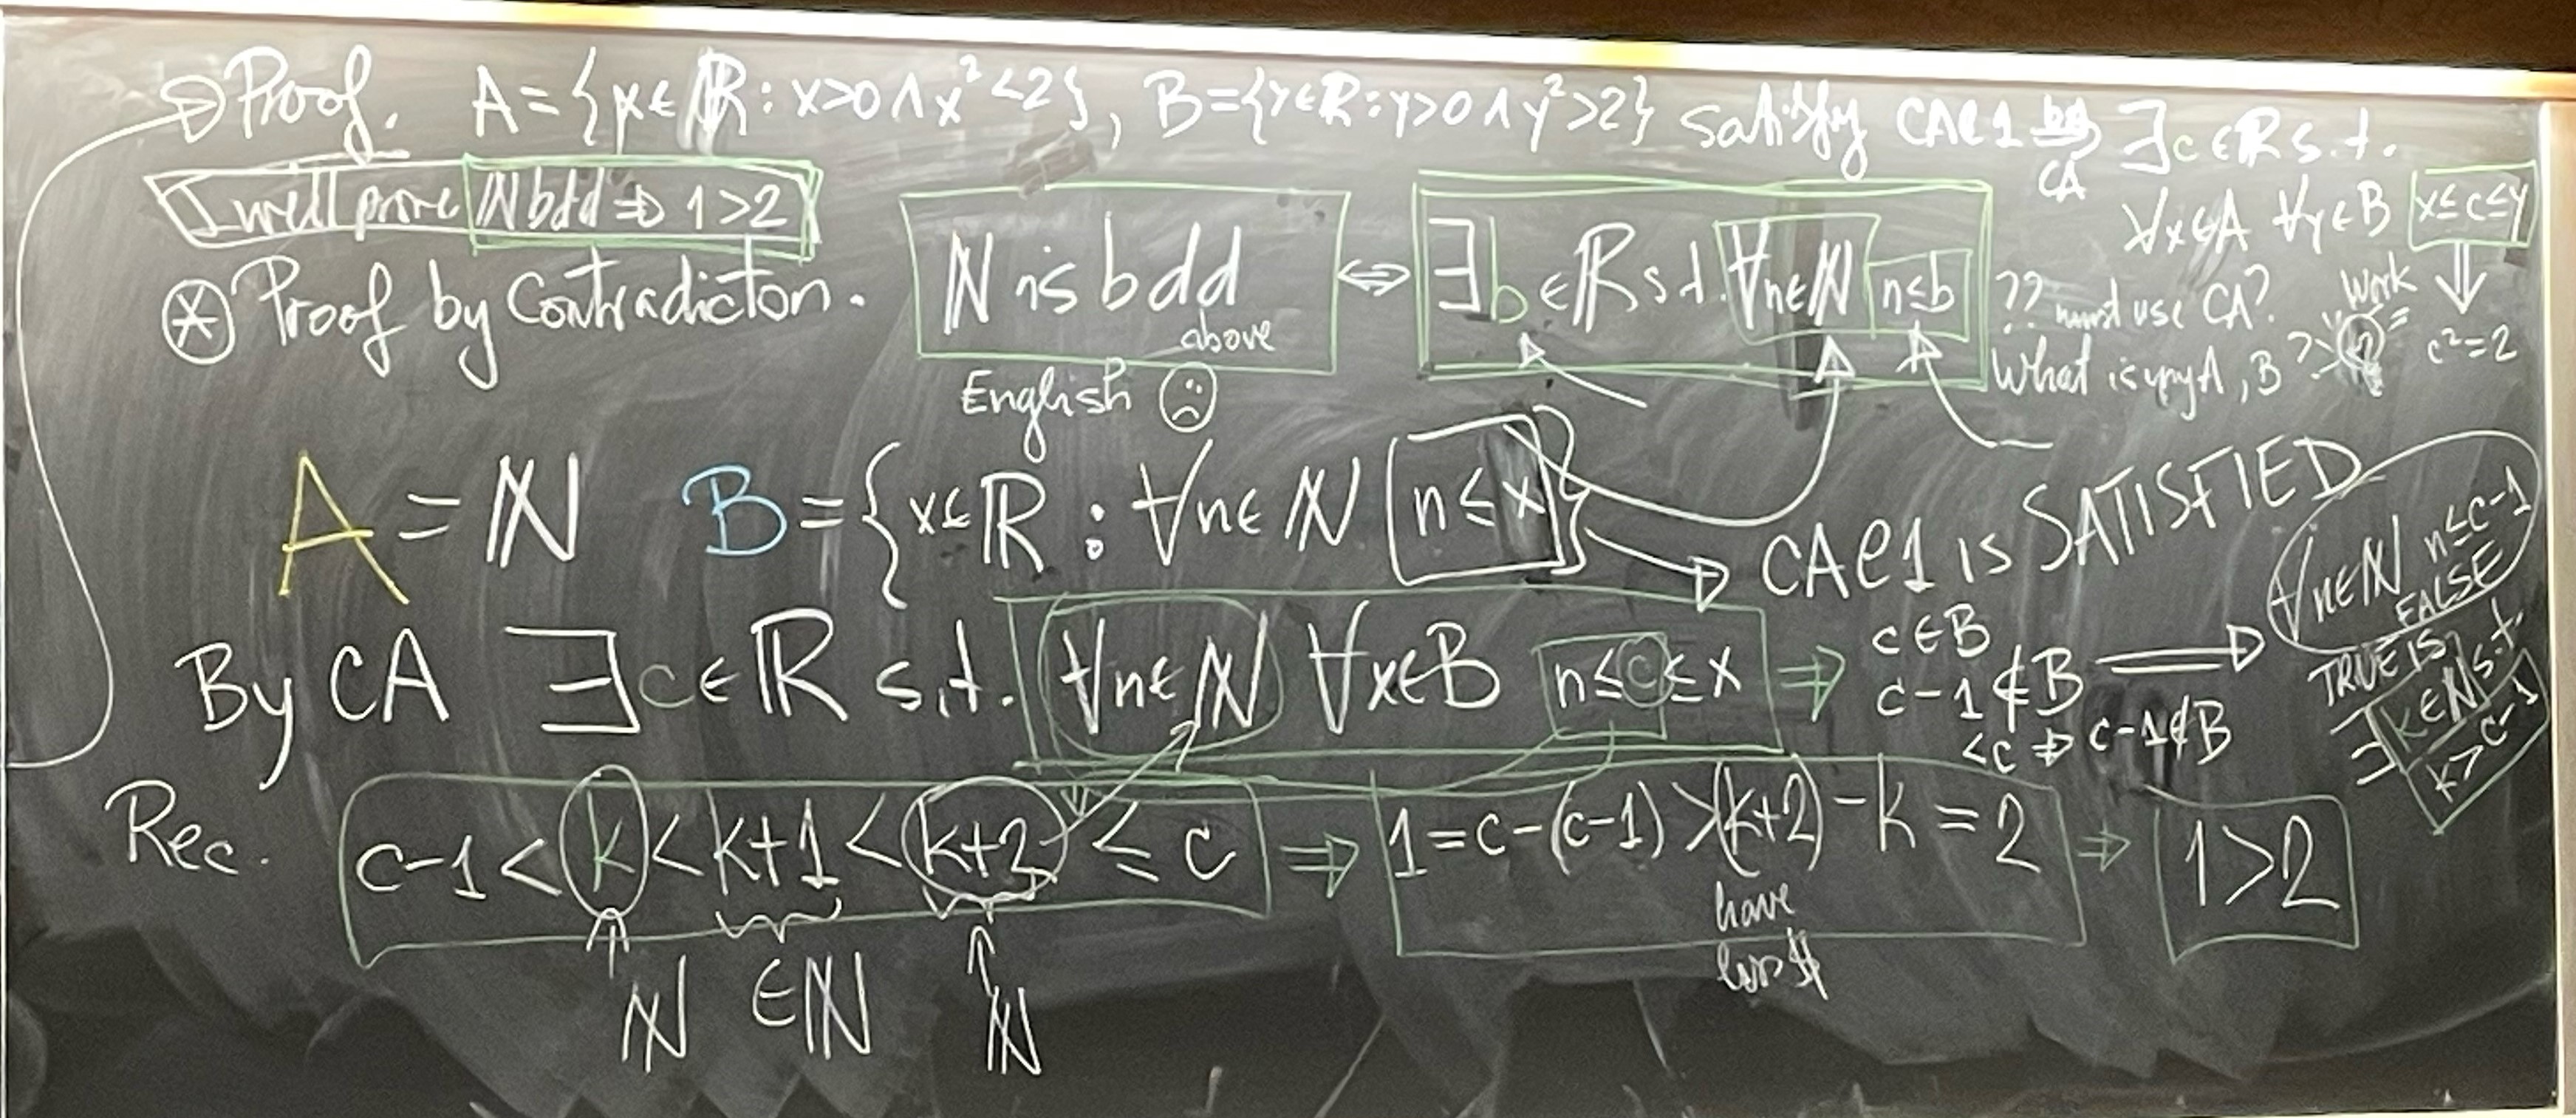 Proof. A={x∈ℝ: x>0 ∧ x²<2}, B={y∈ℝ: y>0 ∧ y²>2} satisfy CAC1 by CA ∃c∈ℝ s.t.
∀x∈A ∀y∈B x≤c≤y
I will prove ℕ bdd ⇒ 1>2
⊛ Proof by Contradicton.
ℕ is bdd above ⇔ ∃b∈ℝ s.t. ∀n∈ℕ n≤b
English ☹
?? must use CA?
What is my A, B?
Work
⇓
c²=2
A = ℕ B = {x∈ℝ : ∀n∈ℕ n≤x}
CAC1 is SATISFIED
By CA ∃c∈ℝ s.t. ∀n∈ℕ ∀x∈B n≤c≤x ⇒
c∈B
c-1∉B ⇒
<c ⇒ c-1∉B
∀n∈ℕ n≤c-1
FALSE
TRUE IS
∃k∈ℕ s.t.
k>c-1
Rec. c-1 < k < k+1 < k+2 ≤ c ⇒ 1=c-(c-1)>(k+2)-k=2 ⇒ 1>2
ℕ ∈ℕ ℕ
have